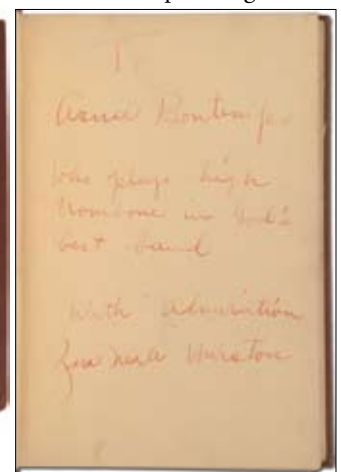 To
Arna Bontemps
who plays high
trombone in God's
best band
With admiration
Zora Neale Hurston